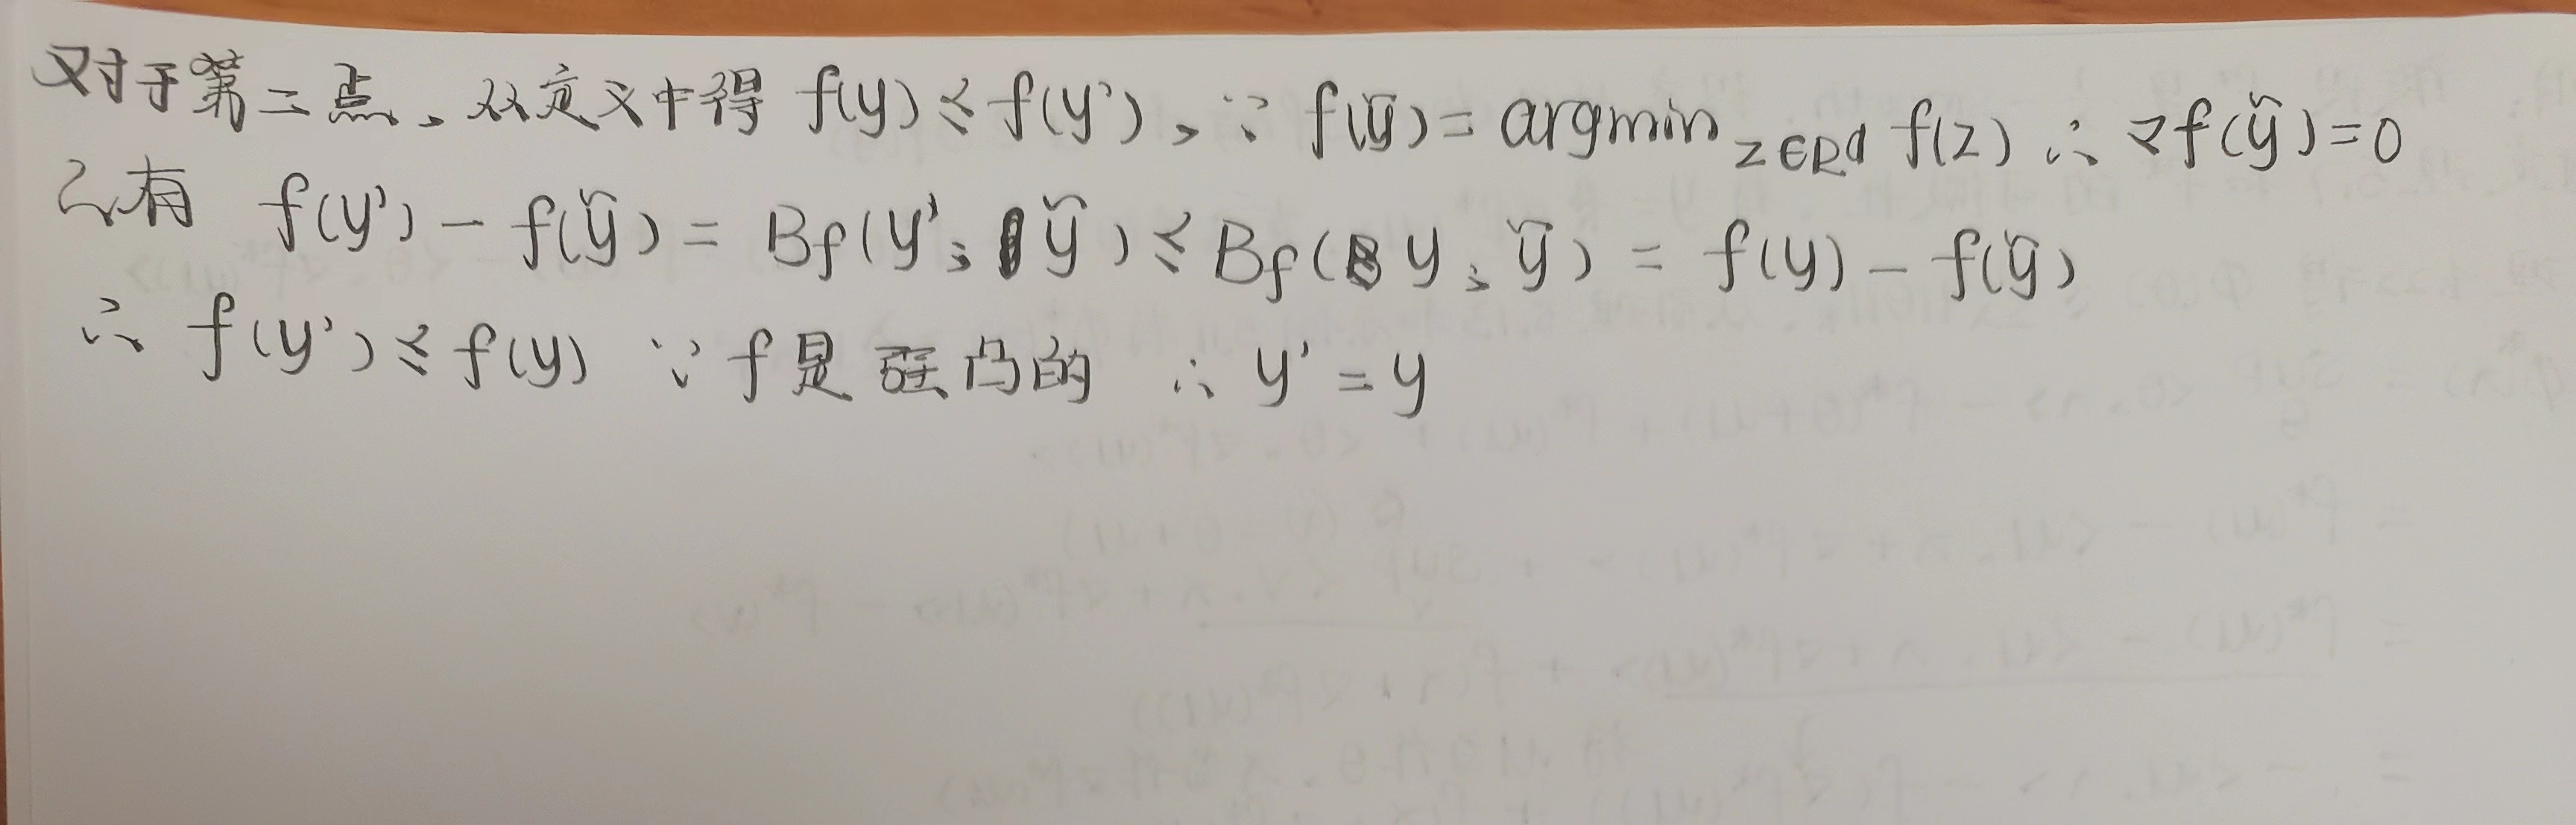 对于第二点,从定义中得 f(y) ≤ f(y'), ∵ f(ỹ) = argmin z∈Rd f(z) ∴ ∇f(ỹ)=0
有 f(y') - f(ỹ) = Bf(y'; ỹ) ≤ Bf(y; ỹ) = f(y) - f(ỹ)
∴ f(y') ≤ f(y) ∵ f是强凸的 ∴ y' = y